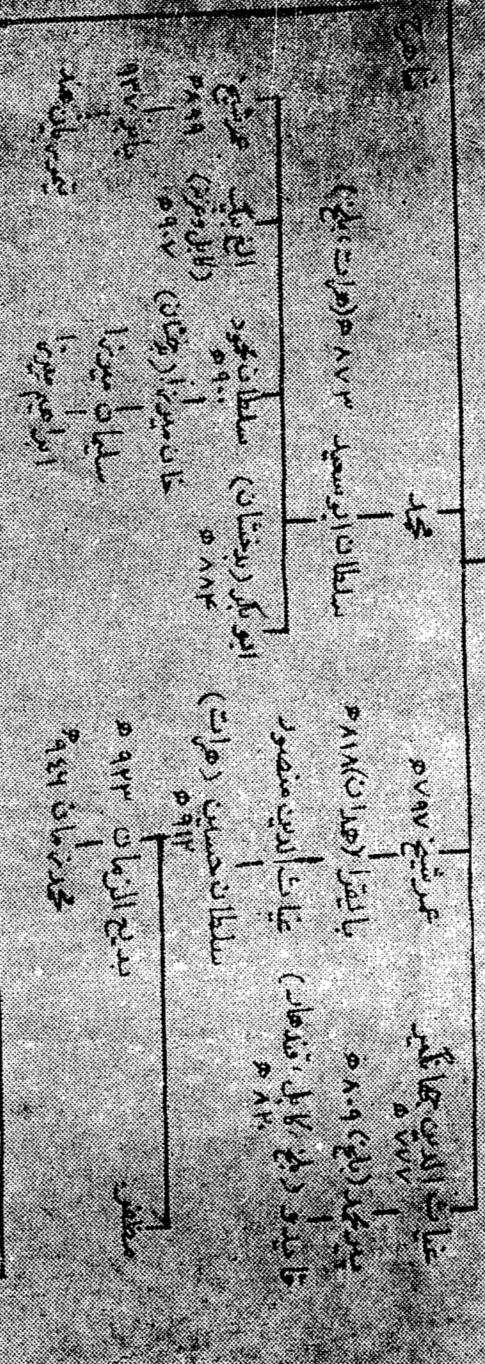 غیاث الدین جهانگیر
۷۷۷ ه
پیر محمد (بلخ) ۸۰۹ ه
قایدو (بلخ، کابل، قندهار)
۸۲۰ ه
عمر شیخ ۷۹۷ ه
بایقرا (همدان) ۸۱۸ ه
غیاث الدین منصور
سلطان حسین (هرات)
۹۱۲ ه
مظفر
بدیع الزمان ۹۲۳ ه
محمد زمان ۹۴۶ ه
محمد
سلطان ابو سعید ۸۷۳ ه (هرات، بلخ)
ابو بکر (بدخشان)
۸۸۴ ه
سلطان محمود
۹۰۰ ه
خان میرزا (بدخشان)
سلیمان میرزا
ابراهیم میرزا
الغ بیگ
(کابل و غزنه)
۹۰۷ ه
عمر شیخ
۸۹۹ ه
بابر
۹۳۷
تیموریان هند